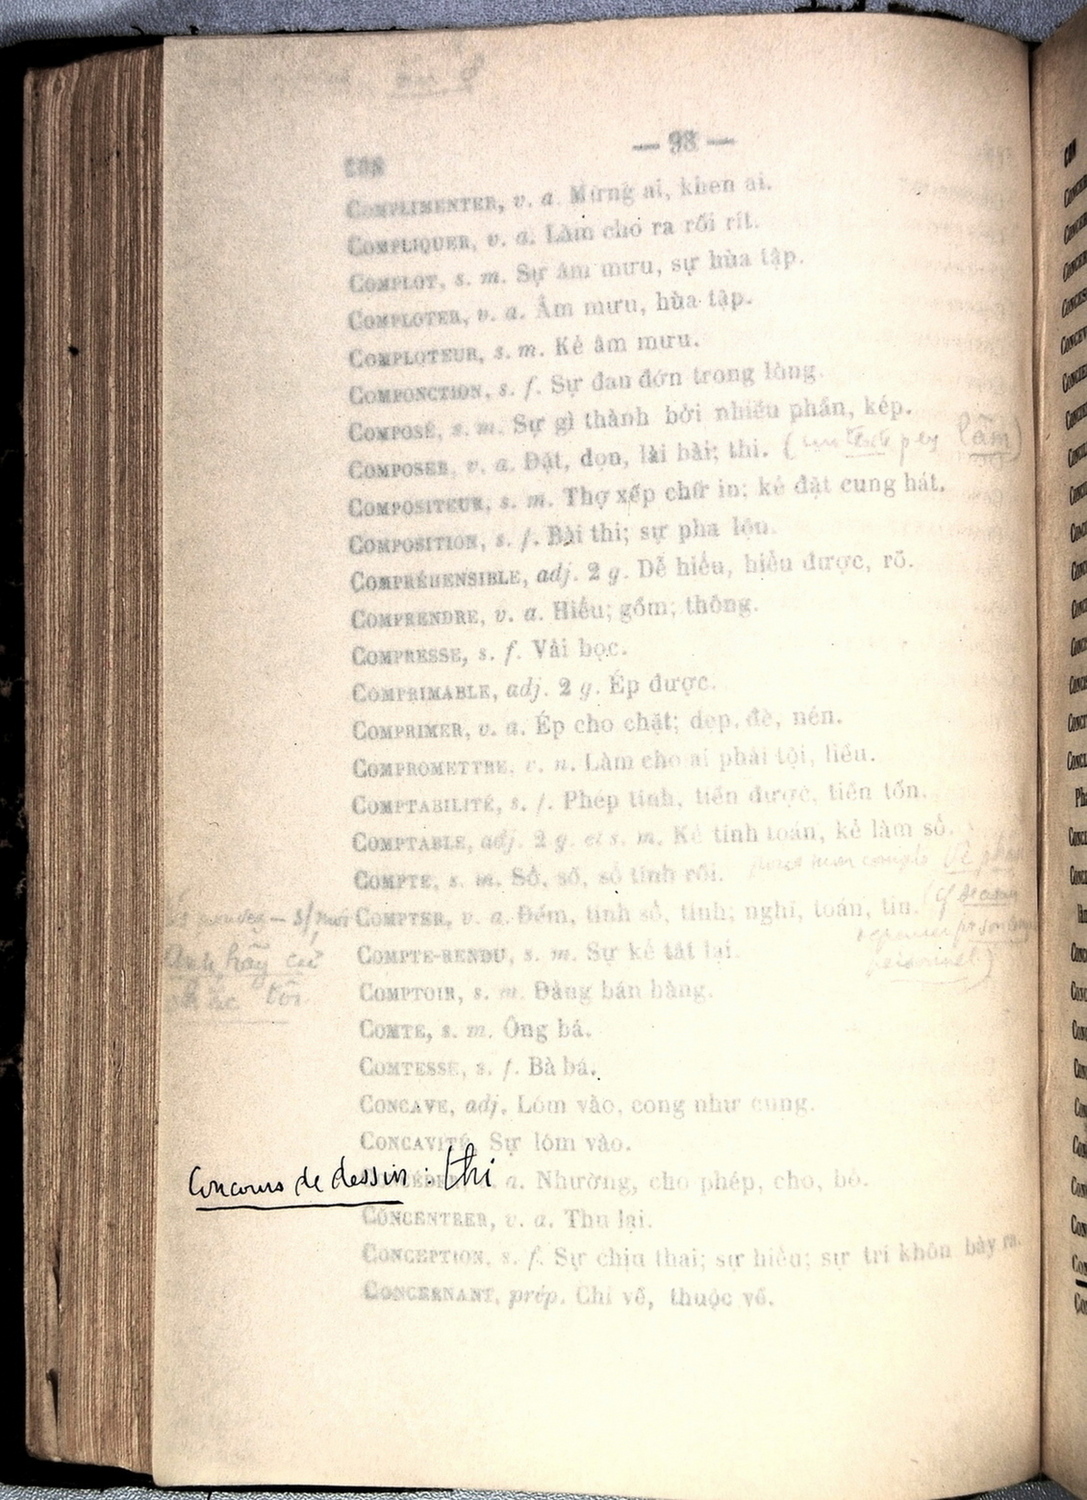 — 98 —
CON
COMPLIMENTER, v. a. Mừng ai, khen ai.
COMPLIQUER, v. a. Làm cho ra rối rít.
COMPLOT, s. m. Sự âm mưu, sự hùa tập.
COMPLOTER, v. a. Âm mưu, hùa tập.
COMPLOTEUR, s. m. Kẻ âm mưu.
COMPONCTION, s. f. Sự đau đớn trong lòng.
COMPOSÉ, s. m. Sự gì thành bởi nhiều phần, kép.
COMPOSER, v. a. Đặt, dọn, lài bài; thi. (un texte lầm)
COMPOSITEUR, s. m. Thợ xếp chữ in; kẻ đặt cung hát.
COMPOSITION, s. f. Bài thi; sự pha lộn.
COMPRÉHENSIBLE, adj. 2 g. Dễ hiểu, hiểu được, rõ.
COMPRENDRE, v. a. Hiểu; gồm; thông.
COMPRESSE, s. f. Vải bọc.
COMPRIMABLE, adj. 2 g. Ép được.
COMPRIMER, v. a. Ép cho chặt; dẹp, đè, nén.
COMPROMETTRE, v. n. Làm cho ai phải tội, liều.
COMPTABILITÉ, s. f. Phép tính, tiền được, tiền tổn.
COMPTABLE, adj. 2 g. et s. m. Kẻ tính toán, kẻ làm sổ.
COMPTE, s. m. Sổ, số, sổ tính rồi. pour mon compte
COMPTER, v. a. Đếm, tính sổ, tính; nghĩ, toán, tin.
COMPTE-RENDU, s. m. Sự kể tắt lại. personnel)
Anh hãy cứ
COMPTOIR, s. m. Đàng bán hàng.
tôi
COMTE, s. m. Ông bá.
COMTESSE, s. f. Bà bá.
CONCAVE, adj. Lõm vào, cong như cung.
CONCAVITÉ, Sự lõm vào.
Concours de dessin : thi
CONCÉDER, v. a. Nhường, cho phép, cho, bỏ.
CONCENTRER, v. a. Thu lại.
CONCEPTION, s. f. Sự chịu thai; sự hiểu; sự trí khôn bày ra.
CONCERNANT, prép. Chỉ về, thuộc về.